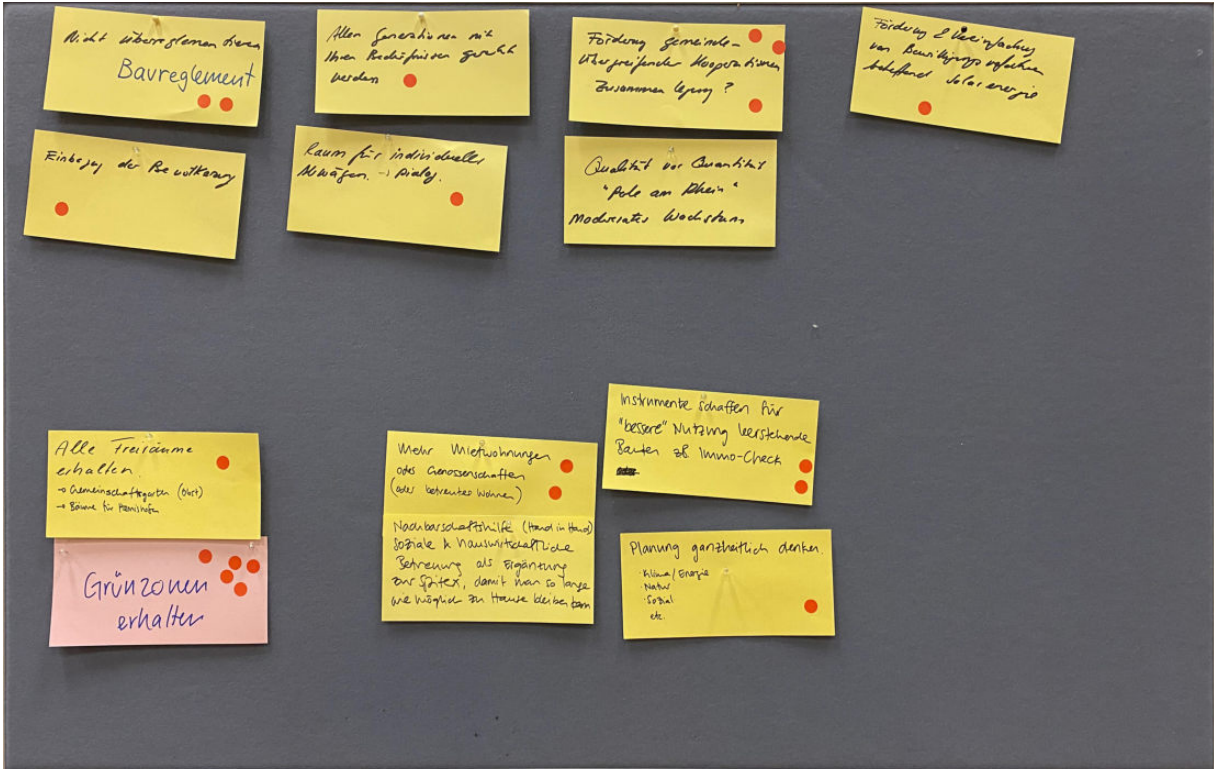 Nicht überreglementieren
Baureglement
Allen Generationen mit
Ihren Bedürfnissen gerecht
werden
Förderung gemeinde-
übergreifender Kooperationen
Zusammenlegung?
Förderung & Vereinfachung
von Bewilligungsverfahren
betreffend Solarenergie
Einbezug der Bevölkerung
Raum für individuelles
Abwägen. → Dialog.
Qualität vor Quantität
"Pole am Rhein"
Moderates Wachstum
Alle Freiräume
erhalten
→ Gemeinschaftsgarten (Obst)
→ Bäume für Hemishofen
Grünzonen
erhalten
Mehr Mietwohnungen
oder Genossenschaften
(oder betreutes Wohnen)
Nachbarschaftshilfe (Hand in Hand)
Soziale & hauswirtschaftliche
Betreuung als Ergänzung
zur Spitex, damit man so lange
wie möglich zu Hause bleiben kann
Instrumente schaffen für
"bessere" Nutzung leerstehende
Bauten zB Immo-Check
Planung ganzheitlich denken.
· Klima/Energie
· Natur
· Sozial
etc.